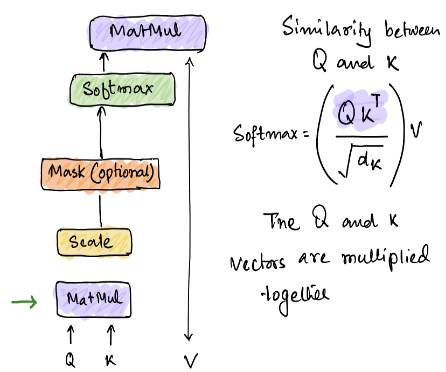 MatMul
Softmax
Mask (optional)
Scale
MatMul
Q K V
Similarity between
Q and K
Softmax = (QK^T / √dK) V
The Q and K
Vectors are multiplied
together